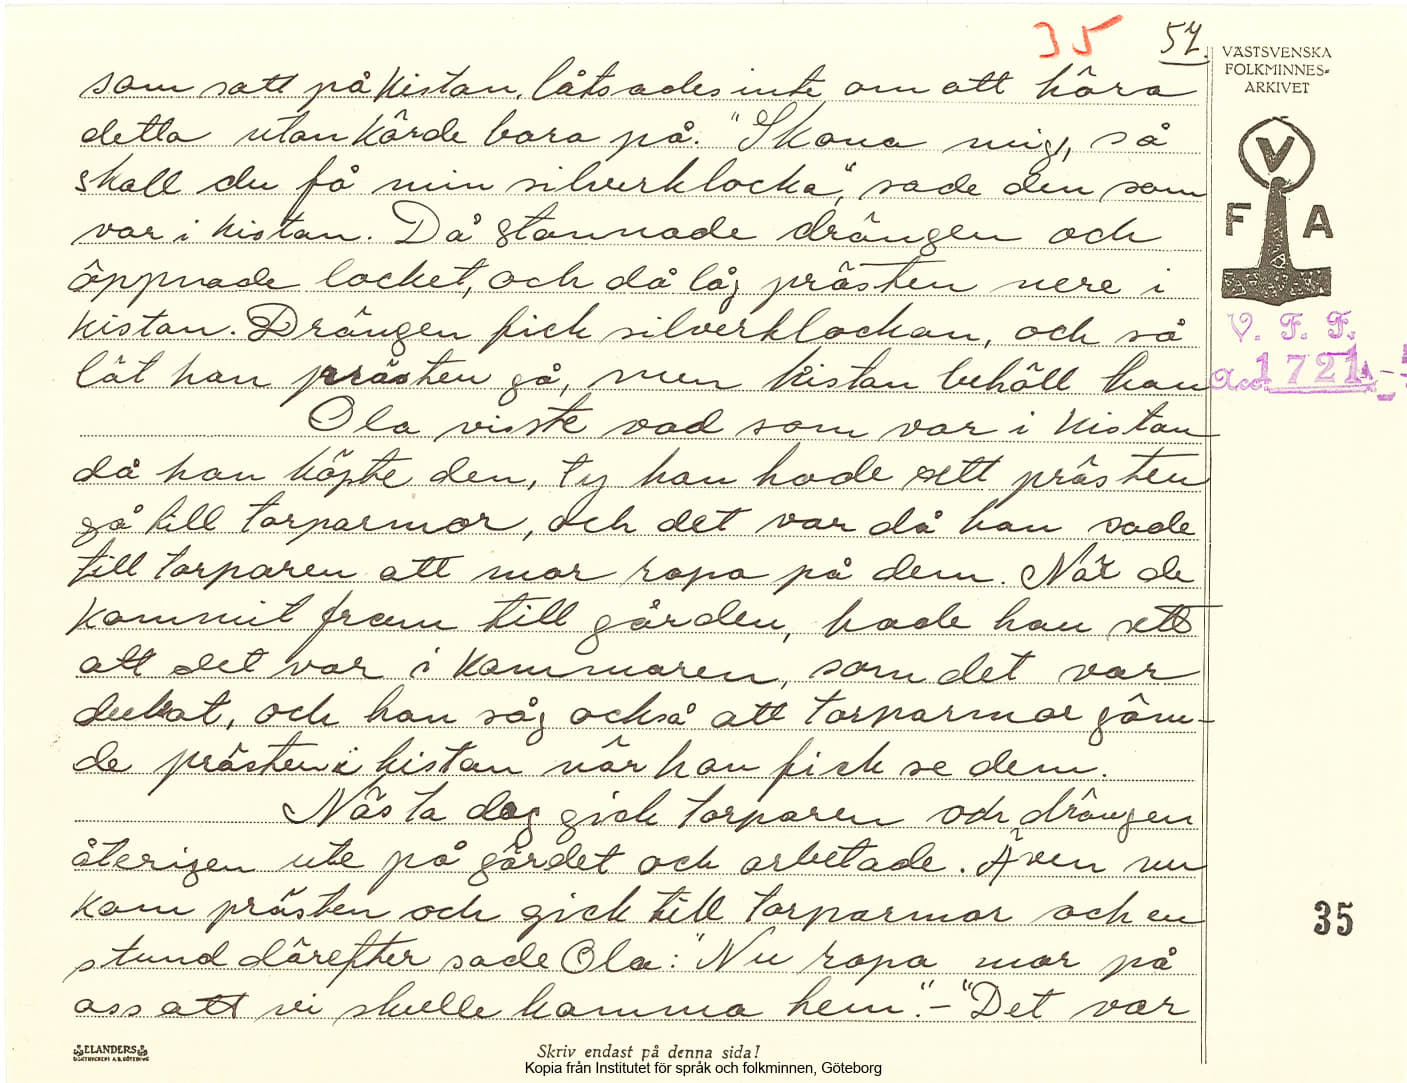 35 57.
VÄSTSVENSKA
FOLKMINNES-
ARKIVET
som satt på kistan, låtsades inte om att höra
detta utan körde bara på. "Skona mig, så
skall du få min silverklocka", sade den som
var i kistan. Då stannade drängen och
öppnade locket, och då låg prästen nere i
kistan. Drängen fick silverklockan, och så
lät han prästen gå, men kistan behöll han
Ola visste vad som var i kistan
då han köpte den, ty han hade sett prästen
gå till torparmor, och det var då han sade
till torparen att mor ropa på dem. När de
kommit fram till gården, hade han sett
att det var i kammaren, som det var
dukat, och han såg också att torparmor göm-
de prästen i kistan när han fick se dem.
Nästa dag gick torparen och drängen
återigen ute på gärdet och arbetade. Även nu
kom prästen och gick till torparmor och en
stund därefter sade Ola: "Nu ropa mor på
oss att vi skulle komma hem". – "Det var
V
F A
V. F. F.
Acc. 1721
35
ELANDERS
BOKTRYCKERI A.B. GÖTEBORG
Skriv endast på denna sida!
Kopia från Institutet för språk och folkminnen, Göteborg